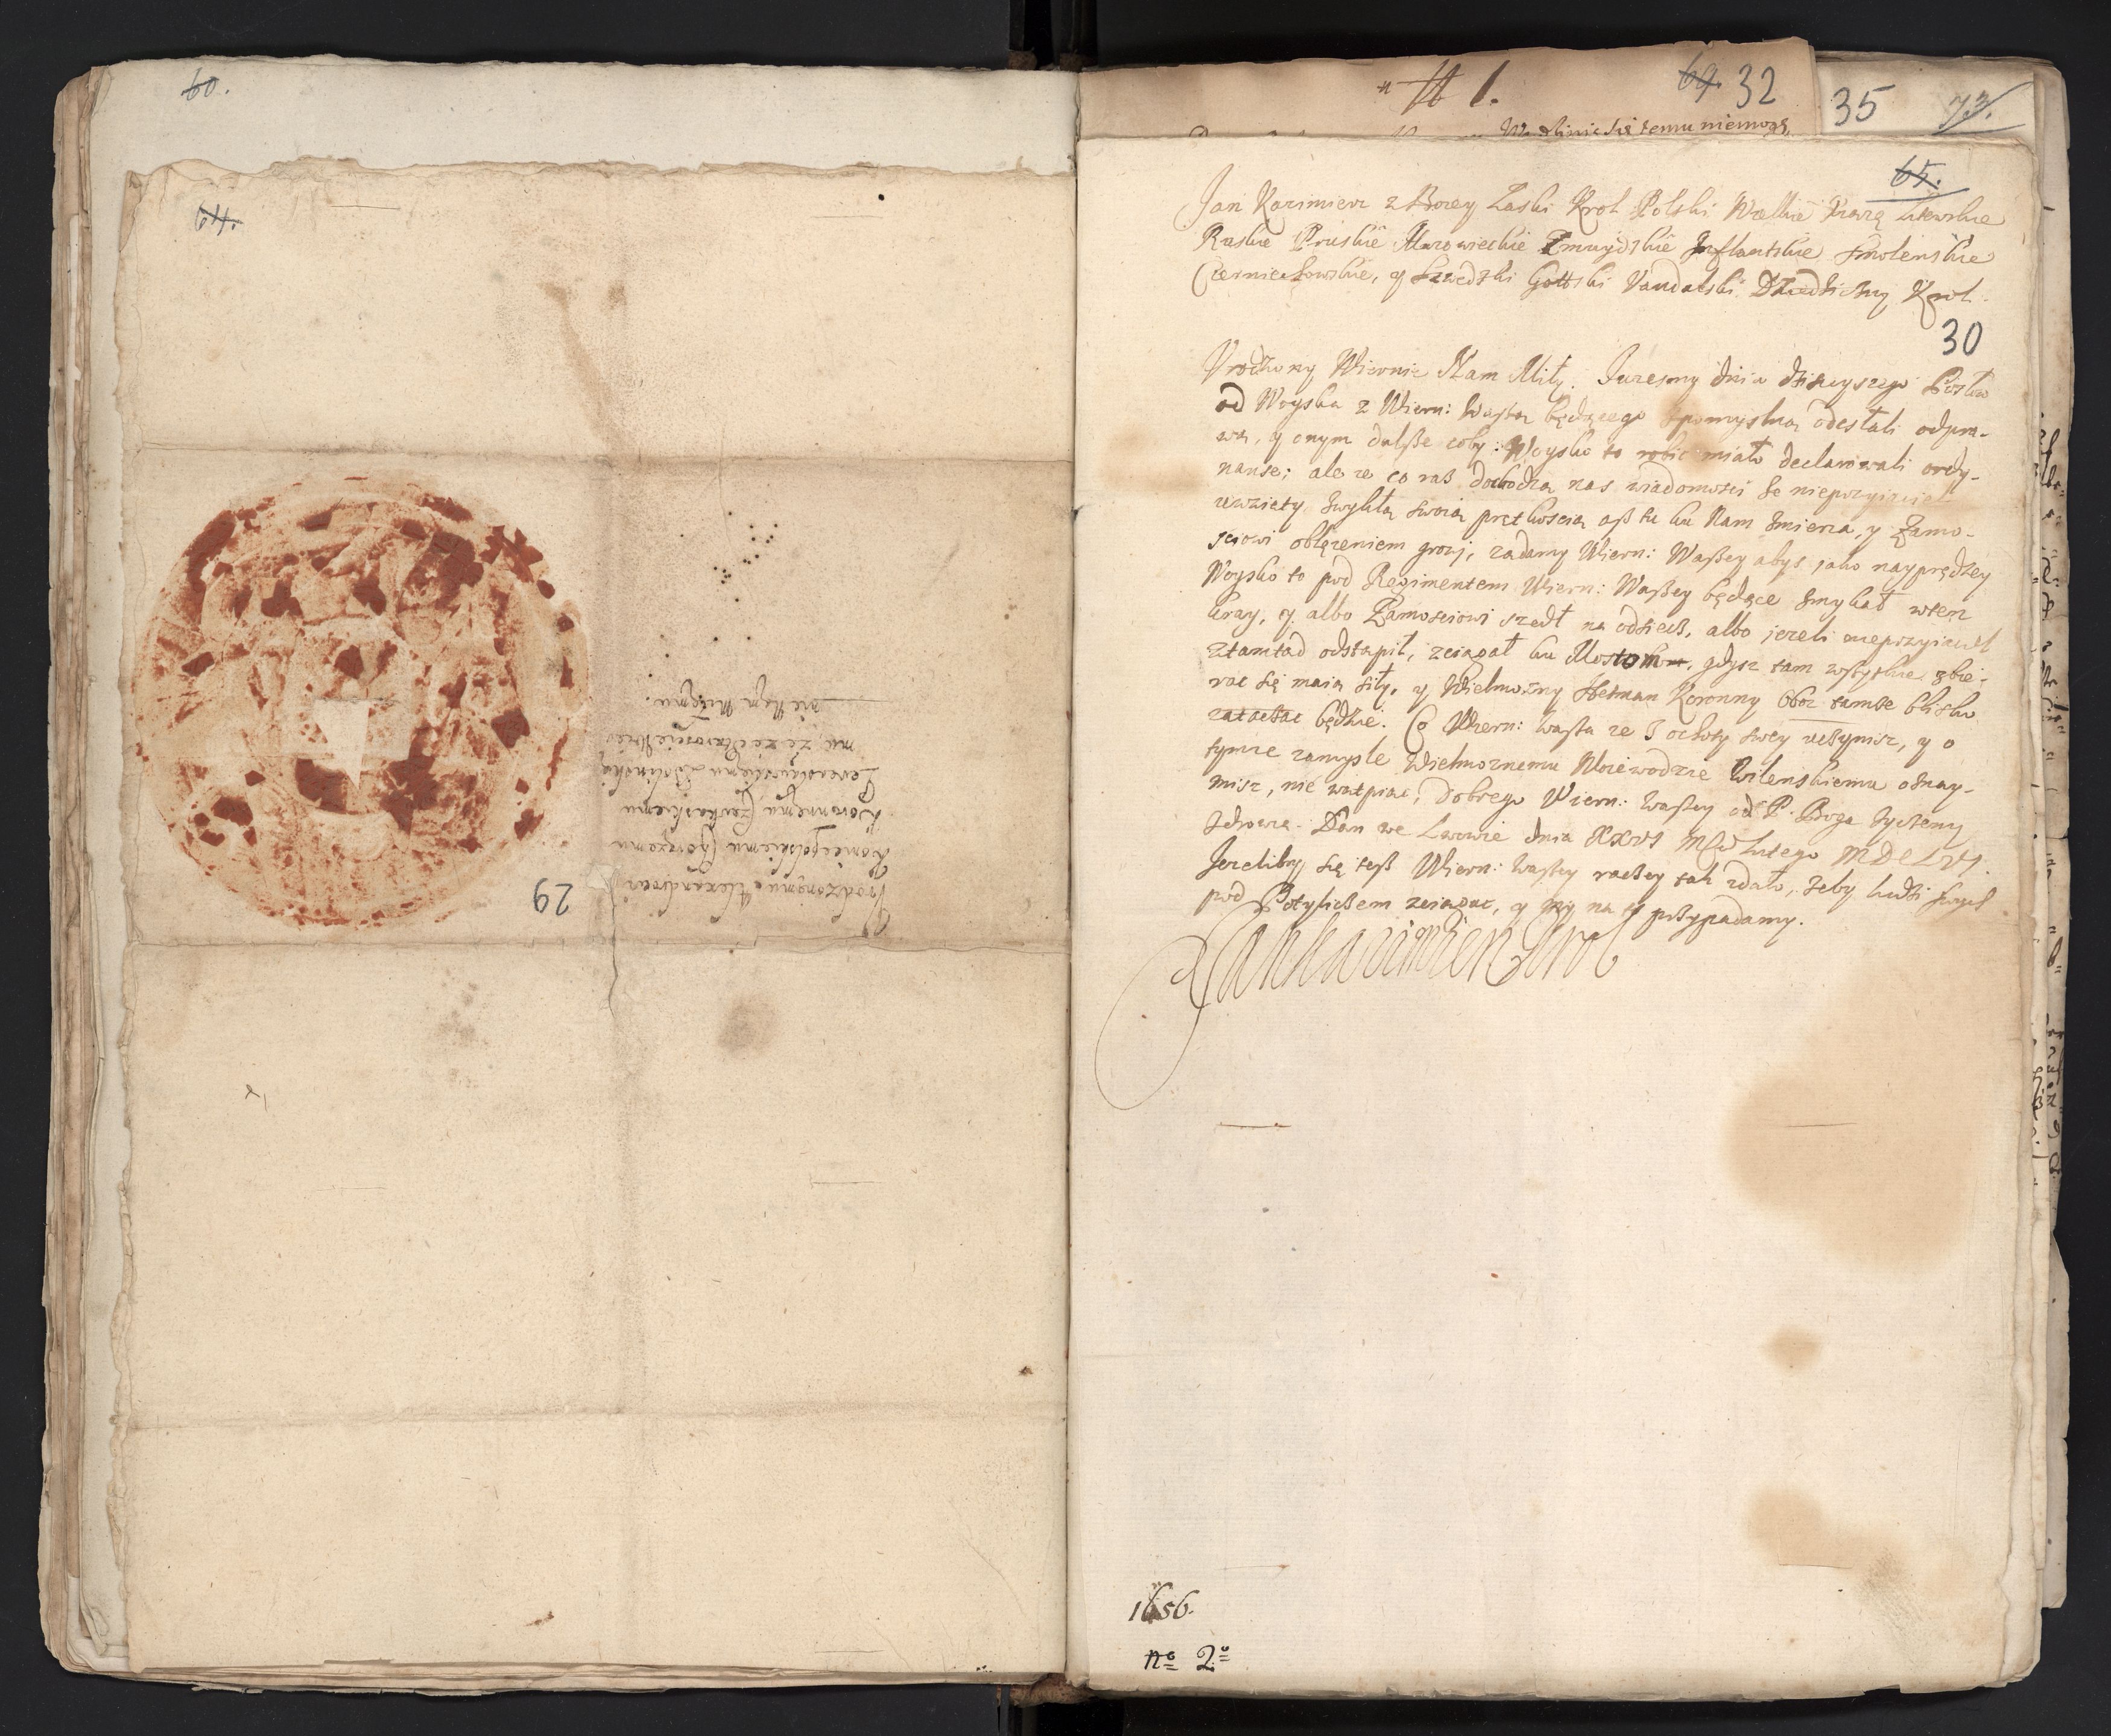 60.
64.
Vrodzonemu Alexandrowi
Koniecpolskiemu Chorązemu
Koronnemu Czerkaskiemu
mu, zę
nie Nam Miłemu.
29
1.
69. 32
35
73.
się temu niemogą
65.
Jan Kazimierz z Bozey Łaski Krol Polski Wielkie Xiąze Litewskie
Ruskie Pruskie Mazowieckie Zmuydzkie Inflantskie Smolenskie
Czerniechowskie, y Szwedzki Gottski Vandalski Dziedziczny Krol.
30
Vrodzony Wiernie Nam Miły. Juzesmy dnia dzisieyszego Posłow
od Woyska z Wiern: Waszą będącego z pomyslną odesłali odpra-
wą, y onym dalsze coby Woysko to robic miało declarowali ordy-
nanse; ale ze co raz dochodzą nas wiadomosci ze nieprzyiaciel
uwzięty zwykłą swoią prętkoscią asz tu ku Nam zmierza, y Zamo-
sciowi oblęzeniem grozi, ządamy Wiern: Waszey abys jako nayprędzey
Woysko to pod Regimentem Wiern: Waszey będące zmykał wten
kray, y albo Zamosciowi szedł na odsiecz, albo jezeli nieprzyiaciel
ztamtąd odstąpił, zciągał ku Mostom, gdysz tam wszystkie zbie-
rac się maią siły, y Wielmozny Hetman Koronny Oboz tamze blisko
zataczac będzie. Co Wiern: Wasza ze z ochoty swey uczynisz, y o
tymze zamysle Wielmoznemu Woiewodzie Wilenskiemu oznay-
misz, nie wątpiąc, dobrego Wiern: Waszey od P. Boga zyczemy
zdrowia. Dan we Lwowie dnia XXVI Mca Lutego MDCLVI.
Jezeliby się tesz Wiern: Waszey raczey tak zdało, zeby ludzi swych
pod Potyliczem zciągac, y my na to przypadamy.
Jan Kazimierz Krol
1656.
no 2o